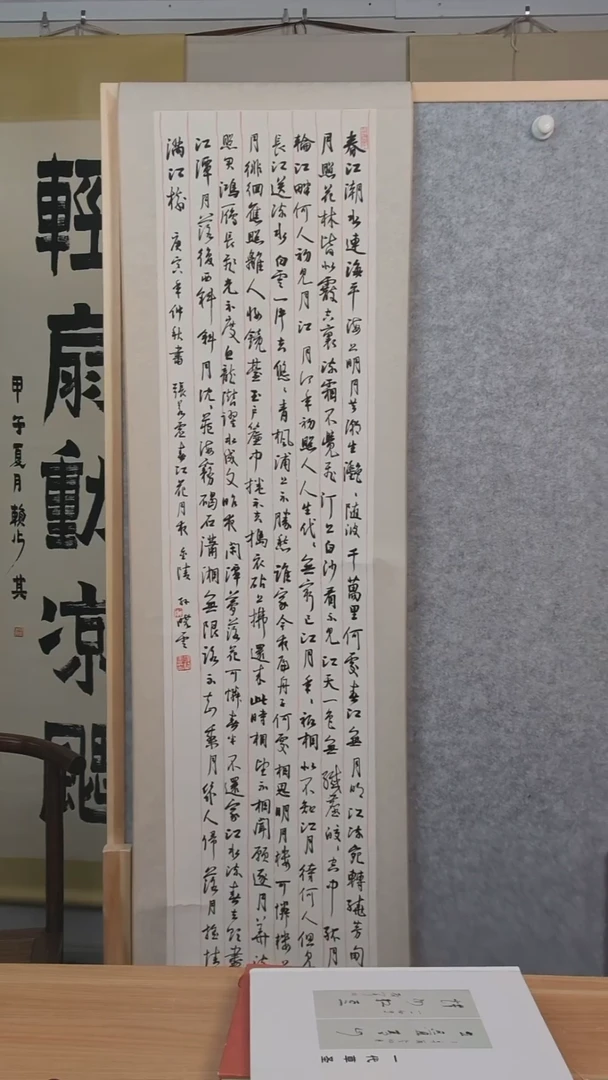 春江潮水連海平海上明月共潮生灧、随波千萬里何處春江無月明江流宛轉繞芳甸
月照花林皆似霰空裏流霜不覺飛汀上白沙看不見江天一色無纖塵皎、空中孤月
輪江畔何人初見月江月何年初照人人生代、無窮已江月年、衹相似不知江月待何人但見
長江送流水白雲一片去悠、青楓浦上不勝愁誰家今夜扁舟子何處相思明月樓可憐樓上
月徘徊應照離人妝鏡臺玉戶簾中捲不去搗衣砧上拂還來此時相望不相聞願逐月華流
照君鴻雁長飛光不度魚龍潛躍水成文昨夜閑潭夢落花可憐春半不還家江水流春去欲盡
江潭月落復西斜斜月沉、藏海霧碣石瀟湘無限路不知乘月幾人歸落月搖情
滿江樹 庚寅年仲秋書 張若虛春江花月夜 孫曉雲
輕扇動涼颸
甲午夏月賴少其
一代草圣